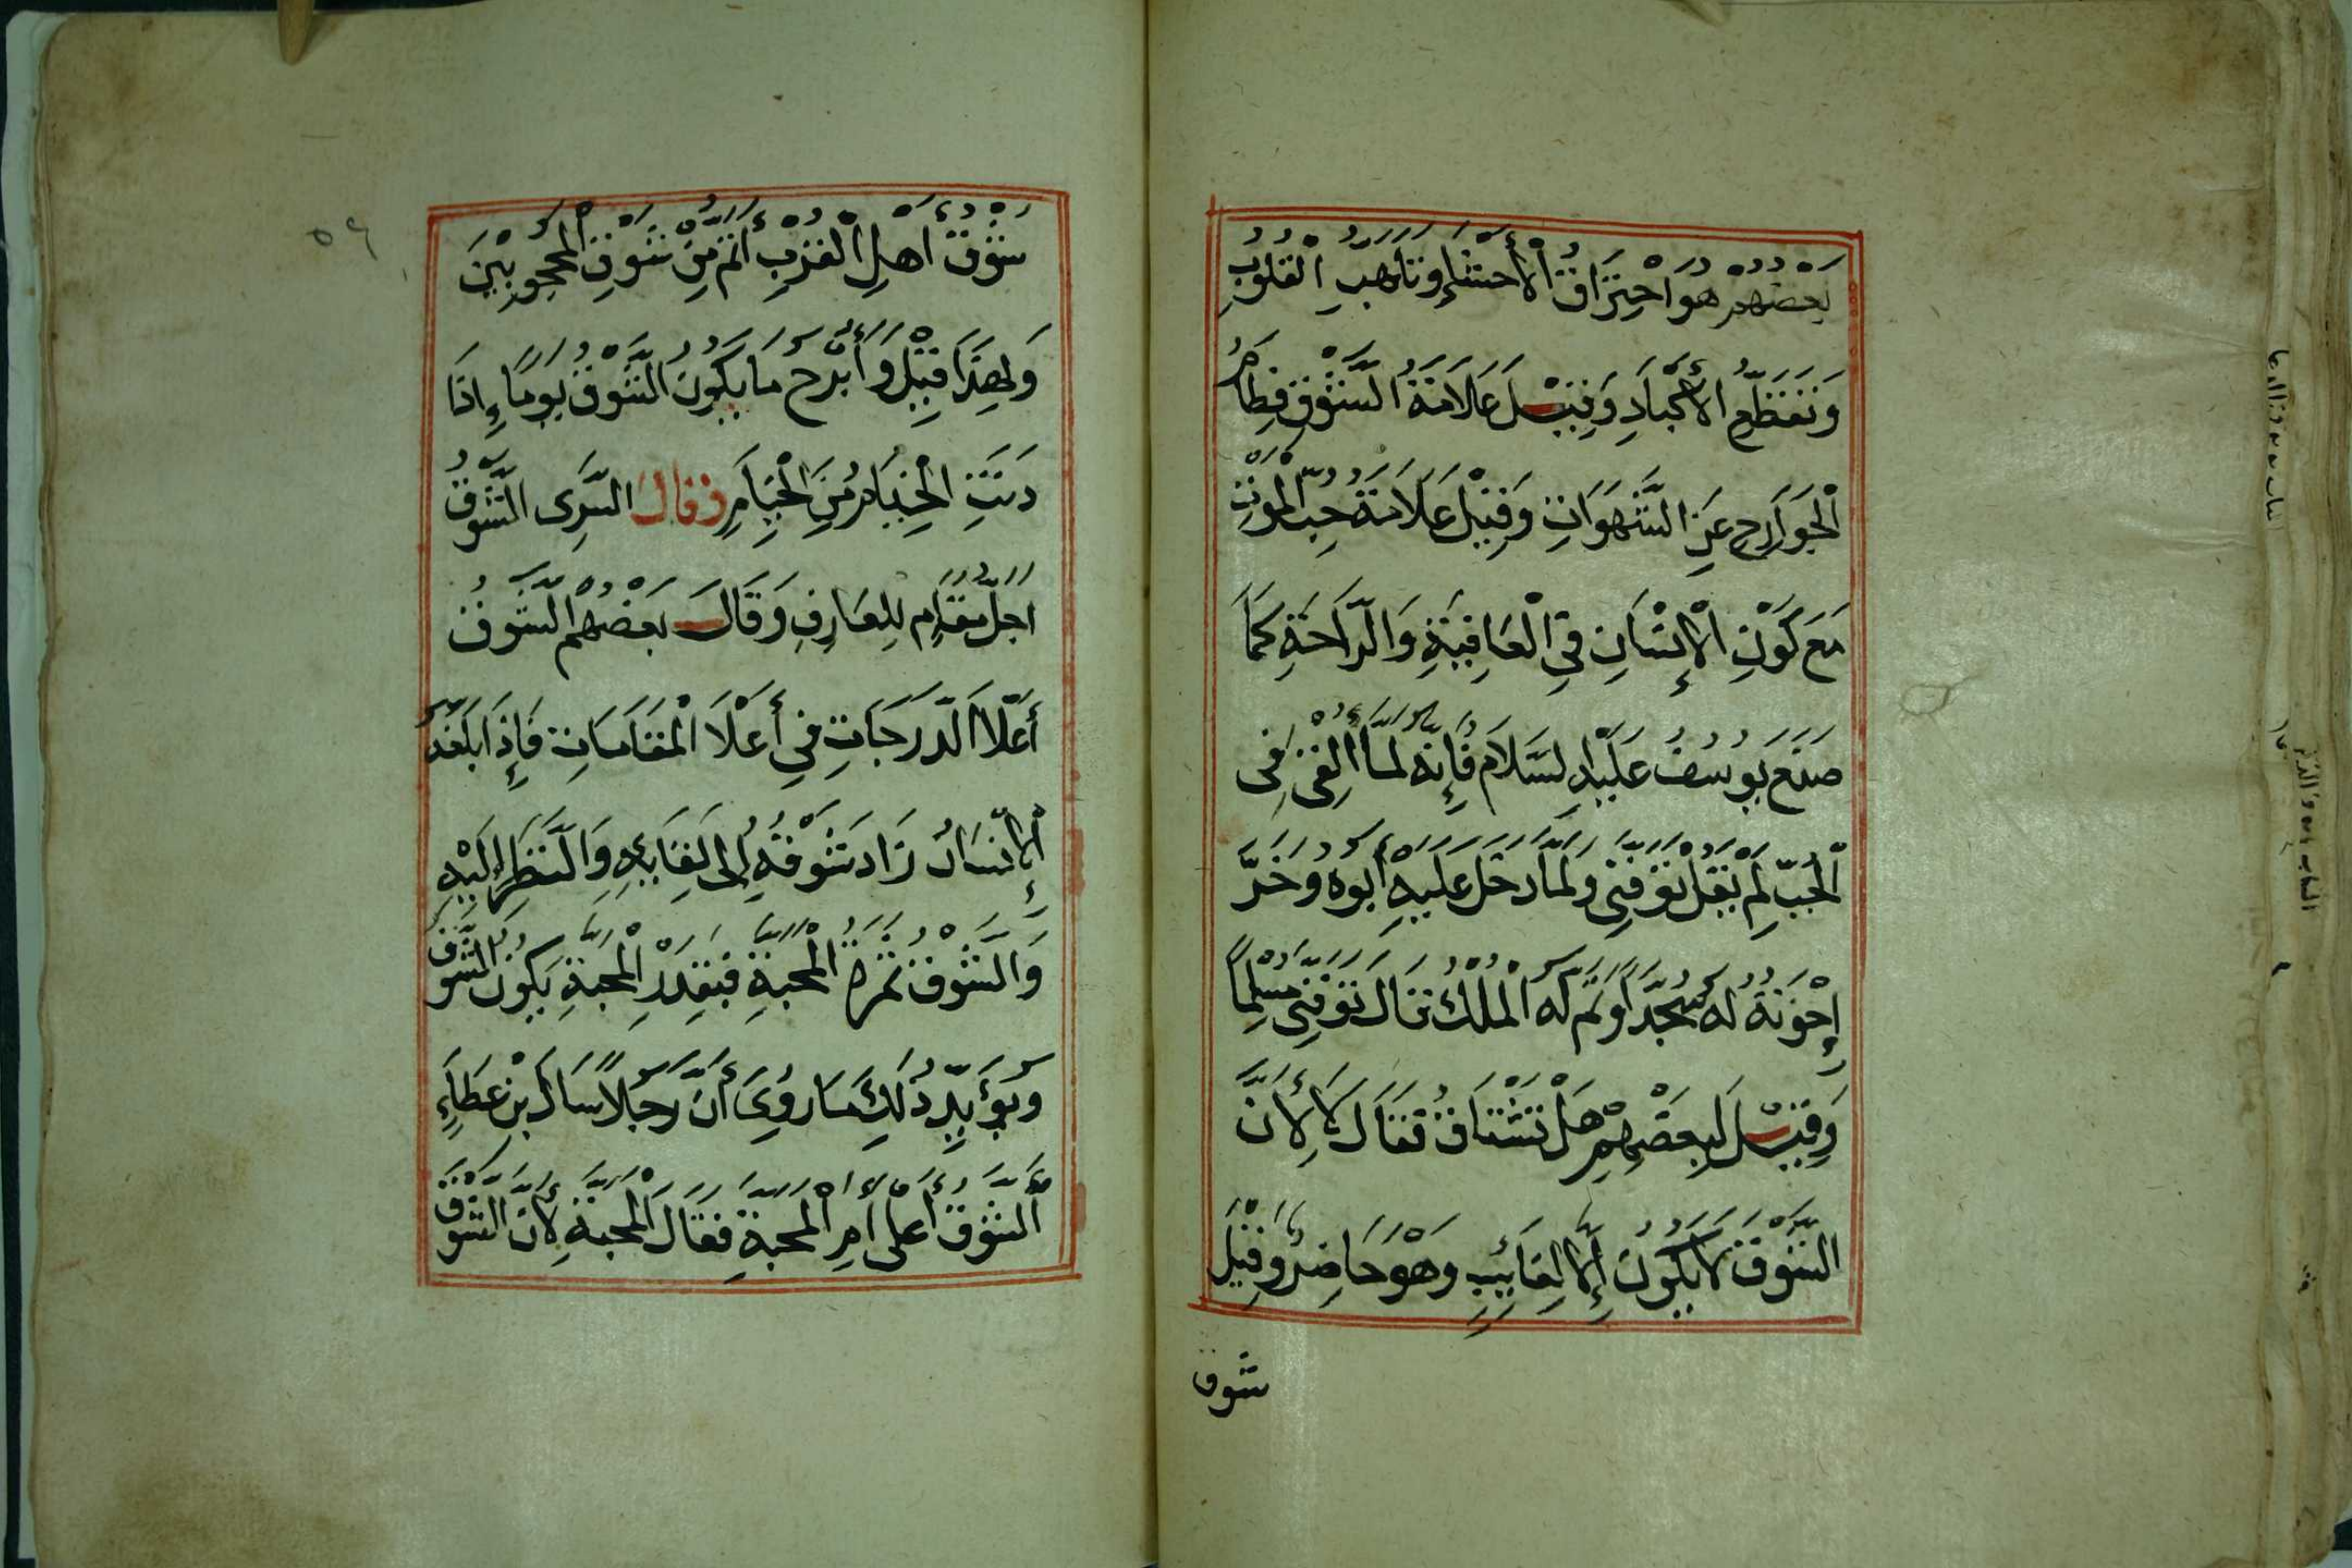 بَعْضُهُمْ هُوَ احْتِرَاقُ الْأَحْشَاءِ وَتَلَهُّبُ الْقُلُوبِ
وَتَقَطُّعِ الْأَكْبَادِ وَقِيْلَ عَلَامَةُ الشَّوْقِ فِطَامُ
الْجَوَارِحِ عَنِ الشَّهَوَاتِ وَقِيْلَ عَلَامَةُ حُبُّ الْمَوْتِ
مَعَ كَوْنِ الْإِنْسَانِ فِي الْعَافِيَةِ وَالرَّاحَةِ كَمَا
صَنَعَ يُوسُفُ عَلَيْهِ السَّلَامُ فَإِنَّهُ لَمَّا أُلْقِىَ فِى
الْجُبِّ لَمْ يَقُلْ تَوَفَّنِى وَلَمَّا دَخَلَ عَلَيْهِ أَبُوهُ وَخَرَّ
إِخْوَتُهُ لَهُ سُجَّدًا وَتَمَّ لَهُ الْمُلْكُ قَالَ تَوَفَّنِى مُسْلِمًا
وَقِيْلَ لِبَعْضِهِمْ هَلْ تَشْتَاقُ فَقَالَ لَا لِأَنَّ
الشَّوْقَ لَا يَكُونُ إِلَّا لِغَائِبِ وَهُوَ حَاضِرٌ وَقِيْلَ
شوق
٥٩
شَوْقُ أَهْلِ الْقُرْبِ أَتَمُّ مِنْ شَوْقِ الْمَحْجُوبِيْنَ
وَلِهَذَا قِيْلَ وَأَبْرَحُ مَا يَكُونُ الشَّوْقُ يَوْمًا إِذَا
دَنَتِ الْخِيَامُ مِنَ الْخِيَامِ وقال السَّرِى الشَّوْقُ
اجَلُّ مَقَامٍ لِلعَارِفِ وَقَالَ بَعْضُهُمْ الشَّوْقُ
أَعْلَا الدَّرَجَاتِ فِي أَعْلَا الْمَقَامَاتِ فَإِذَا بَلَغَهَا
الْإِنْسَانُ زَادَ شَوْقُهُ إِلَى لِقَايِهِ وَالنَّظَرِ إِلَيْهِ
وَالشَّوْقُ ثَمَرَةُ الْمَحَبَّةِ فَبِقَدْرِ الْمَحَبَّةِ يَكُونُ الشَّوْقُ
وَيُؤَيِّدُ ذَلِكَ مَا رُوِىَ أَنَّ رَجُلًا سَاَلَ بْنِ عَطَاءٍ
الشَّوْقُ أَعْلَى أَمِ الْمَحَبَّةِ فَقَالَ الْمَحَبَّةُ لِأَنَّ الشَّوْقَ